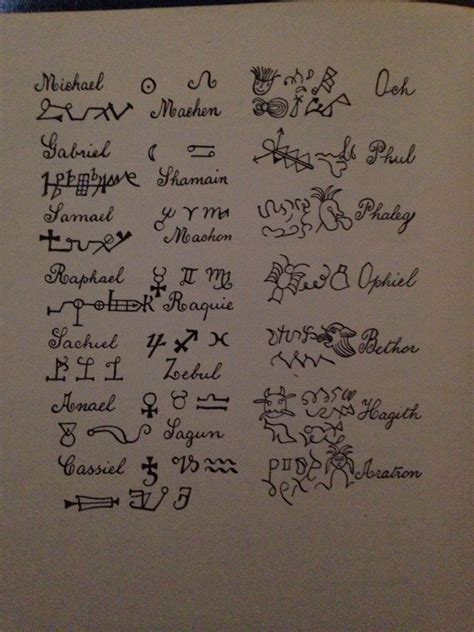 Michael Och
Machen
Gabriel Phul
Shamain
Samael Phaleg
Machon
Raphael Ophiel
Raquie
Sachiel Bethor
Zebul
Anael Hagith
Sagun
Cassiel Aratron